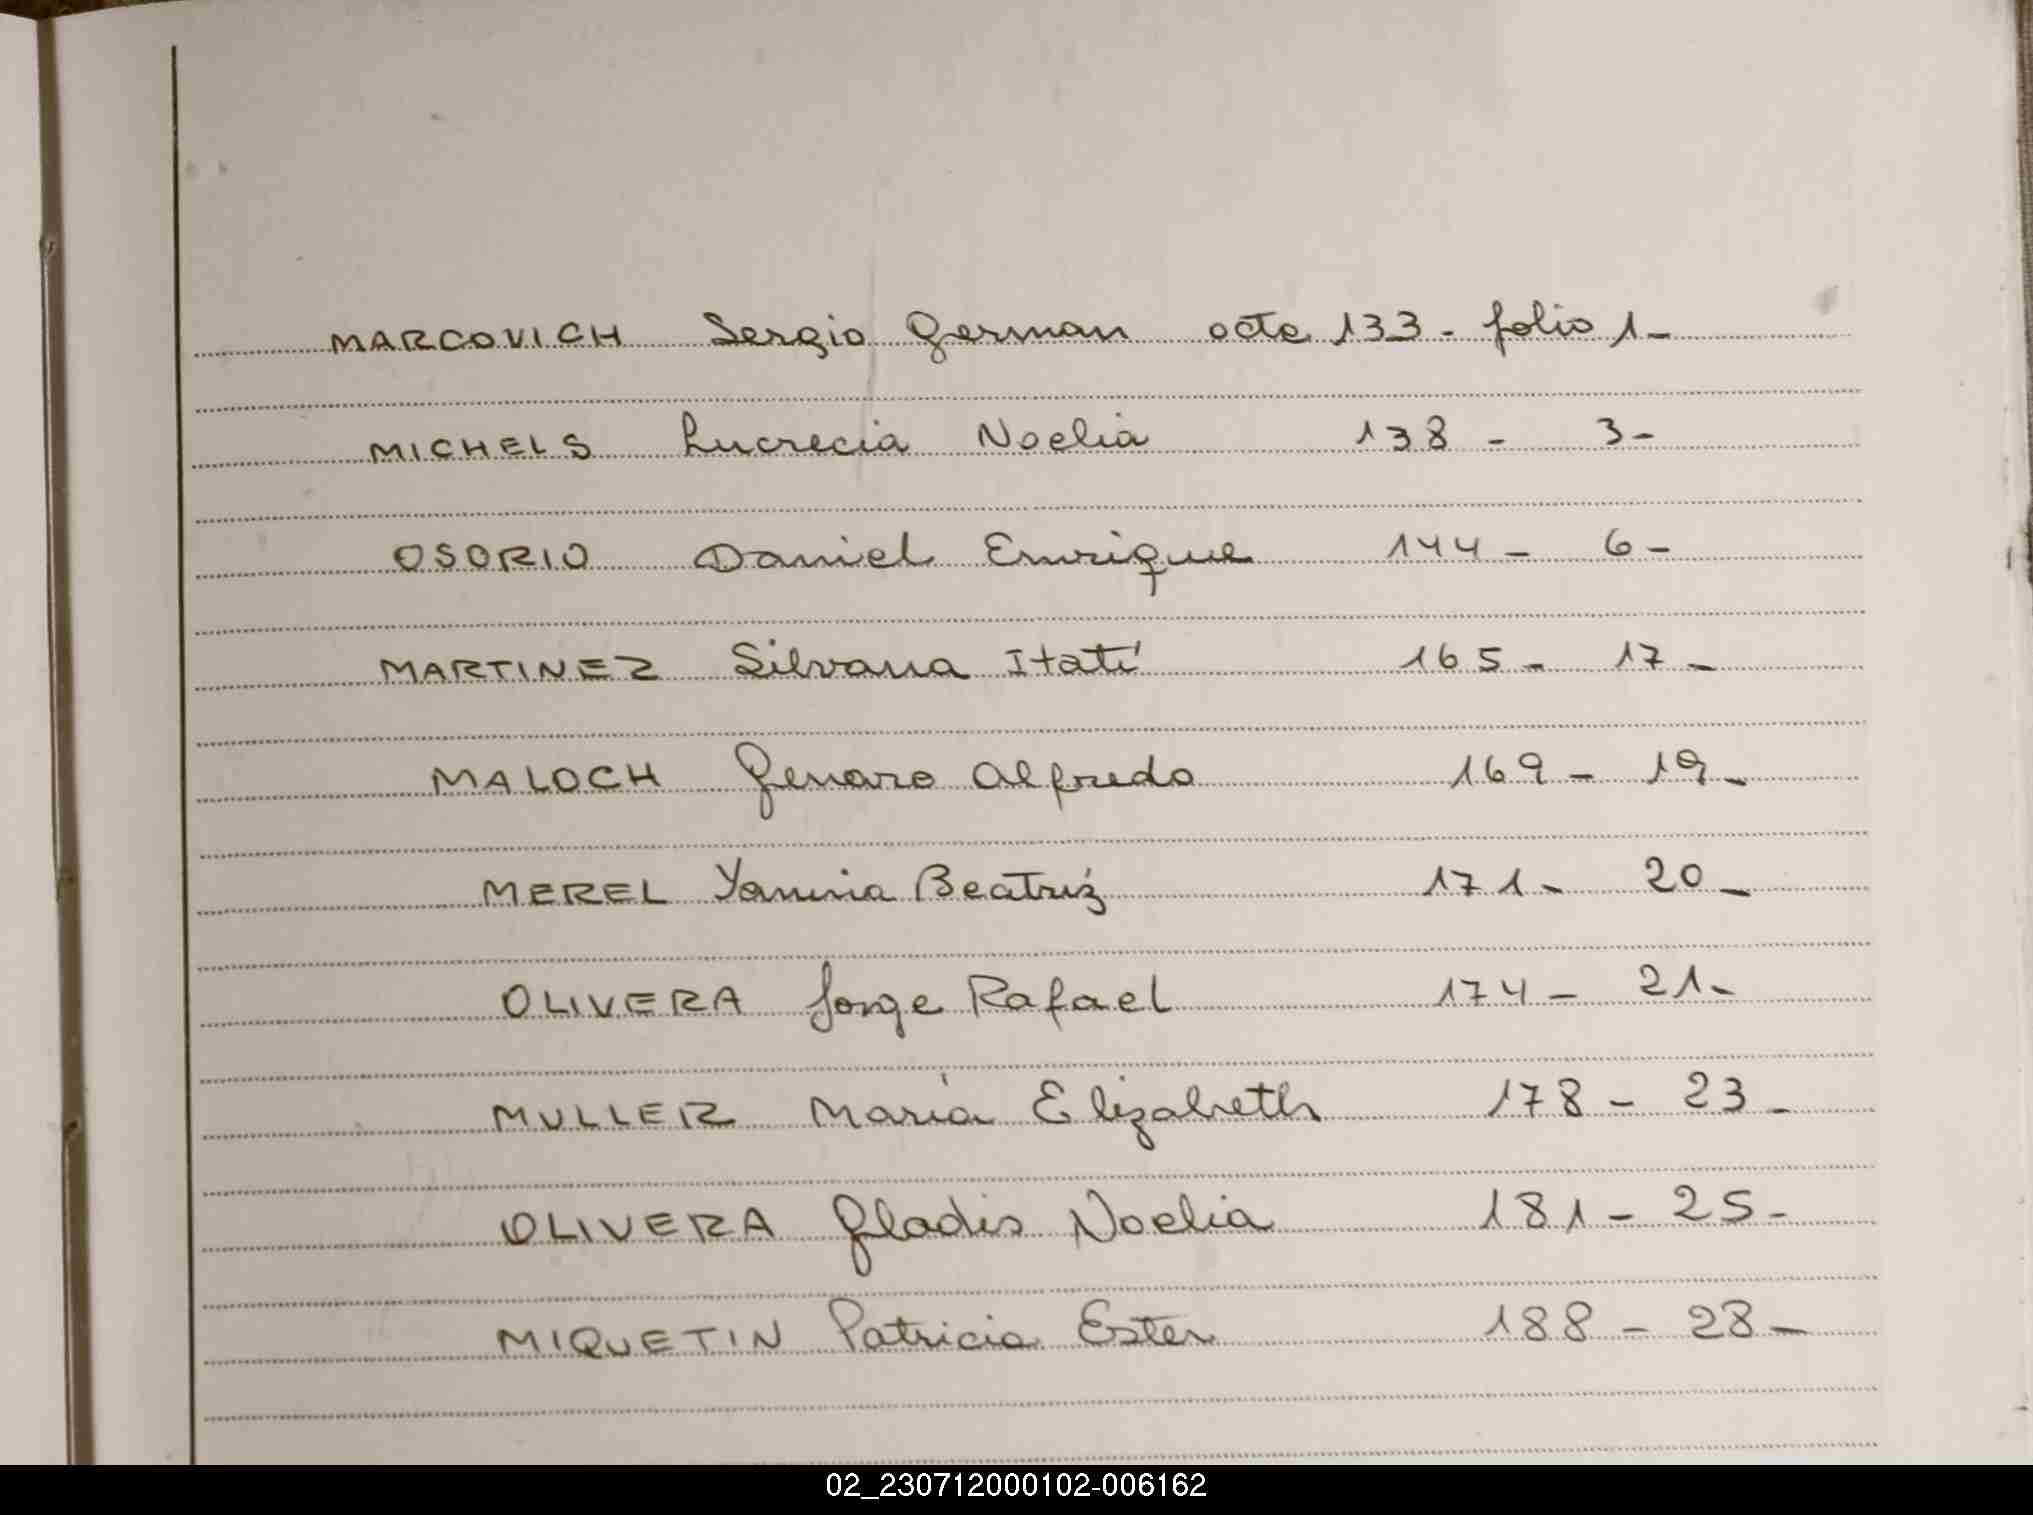 MARCOVICH Sergio German acta 133 - folio 1 -
MICHELS Lucrecia Noelia 138 - 3 -
OSORIO Daniel Enrique 144 - 6 -
MARTINEZ Silvana Itatí 165 - 17 -
MALOCH Genaro Alfredo 169 - 19 -
MEREL Yamina Beatríz 171 - 20 -
OLIVERA Jorge Rafael 174 - 21 -
MULLER María Elizabeth 178 - 23 -
OLIVERA Gladis Noelia 181 - 25 -
MIQUETIN Patricia Ester 188 - 28 -
02_230712000102-006162